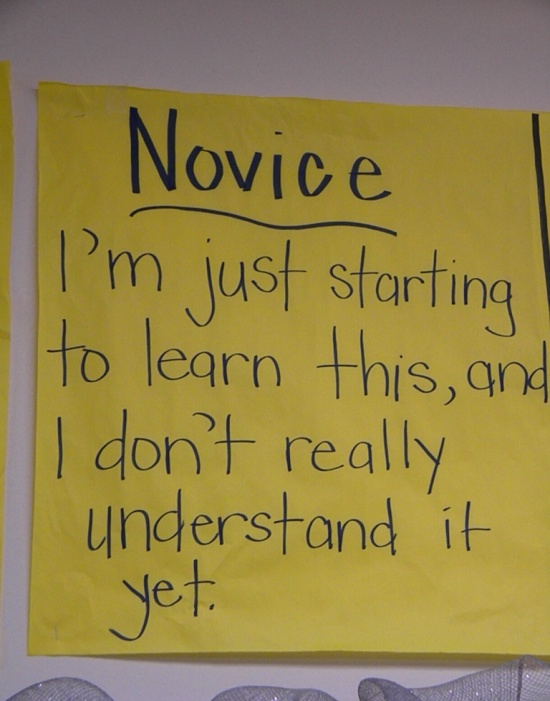 Novice
I'm just starting
to learn this, and
I don't really
understand it
yet.